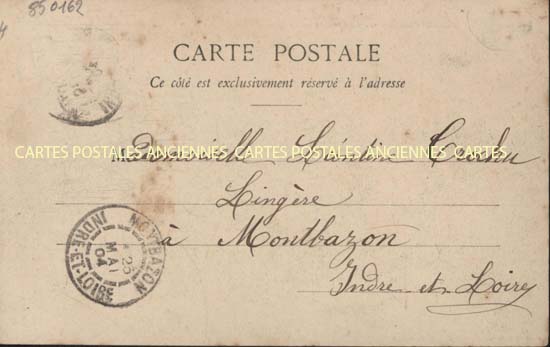 850162
CARTE POSTALE
Ce côté est exclusivement réservé à l'adresse
CARTES POSTALES ANCIENNES CARTES POSTALES ANCIENNES CARTES
Mademoiselle
Lingère
à Montbazon
Indre et Loire
MONTBAZON
25
MAI
04
INDRE-ET-LOIRE